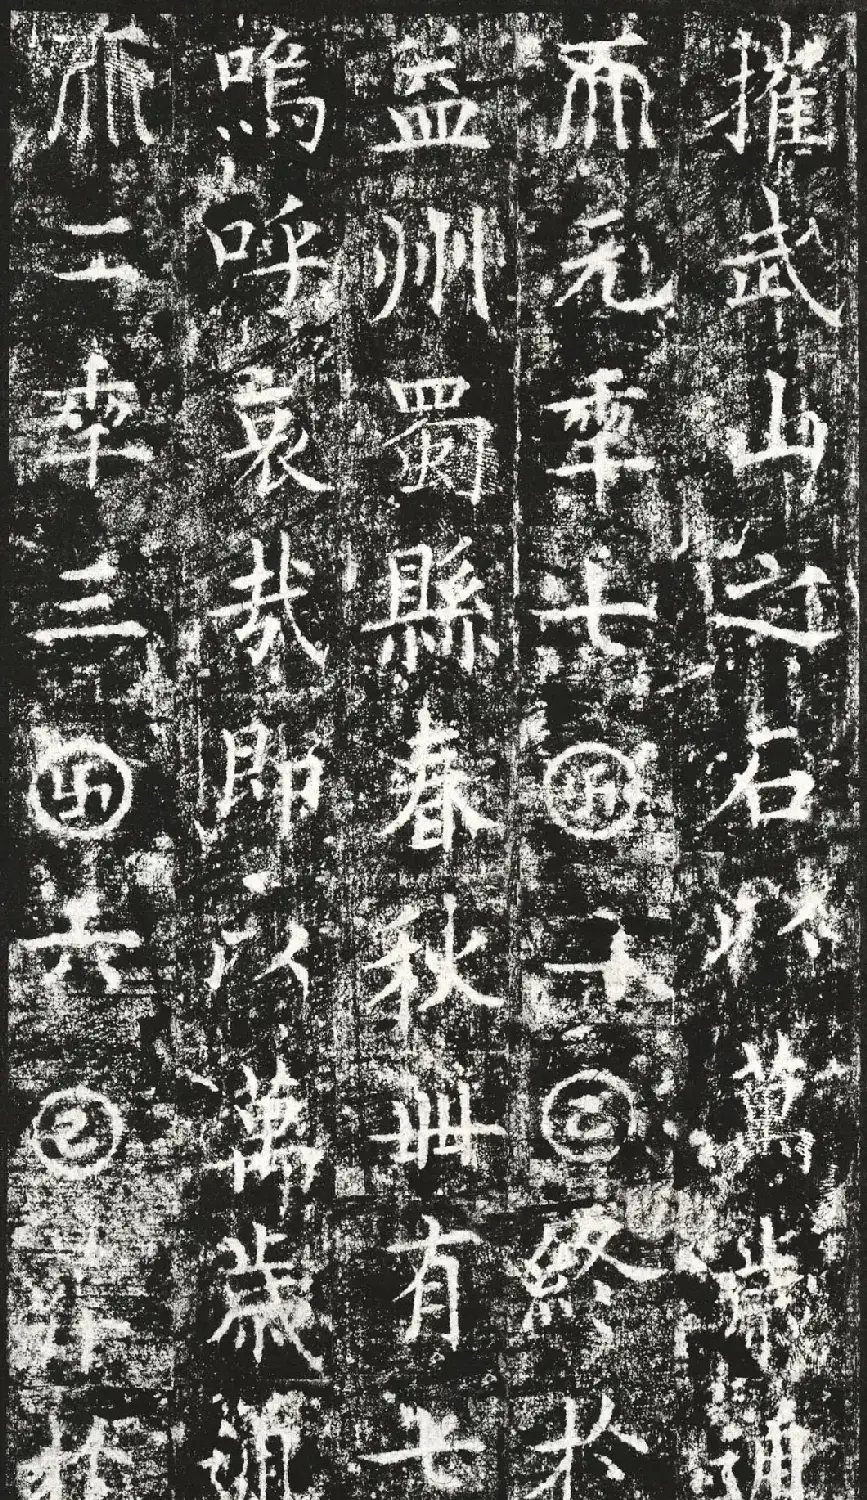 摧武山之石以萬歲通
天元年七月十日終於
益州蜀縣春秋卌有七
嗚呼哀哉即以萬歲通
天二年三月六日